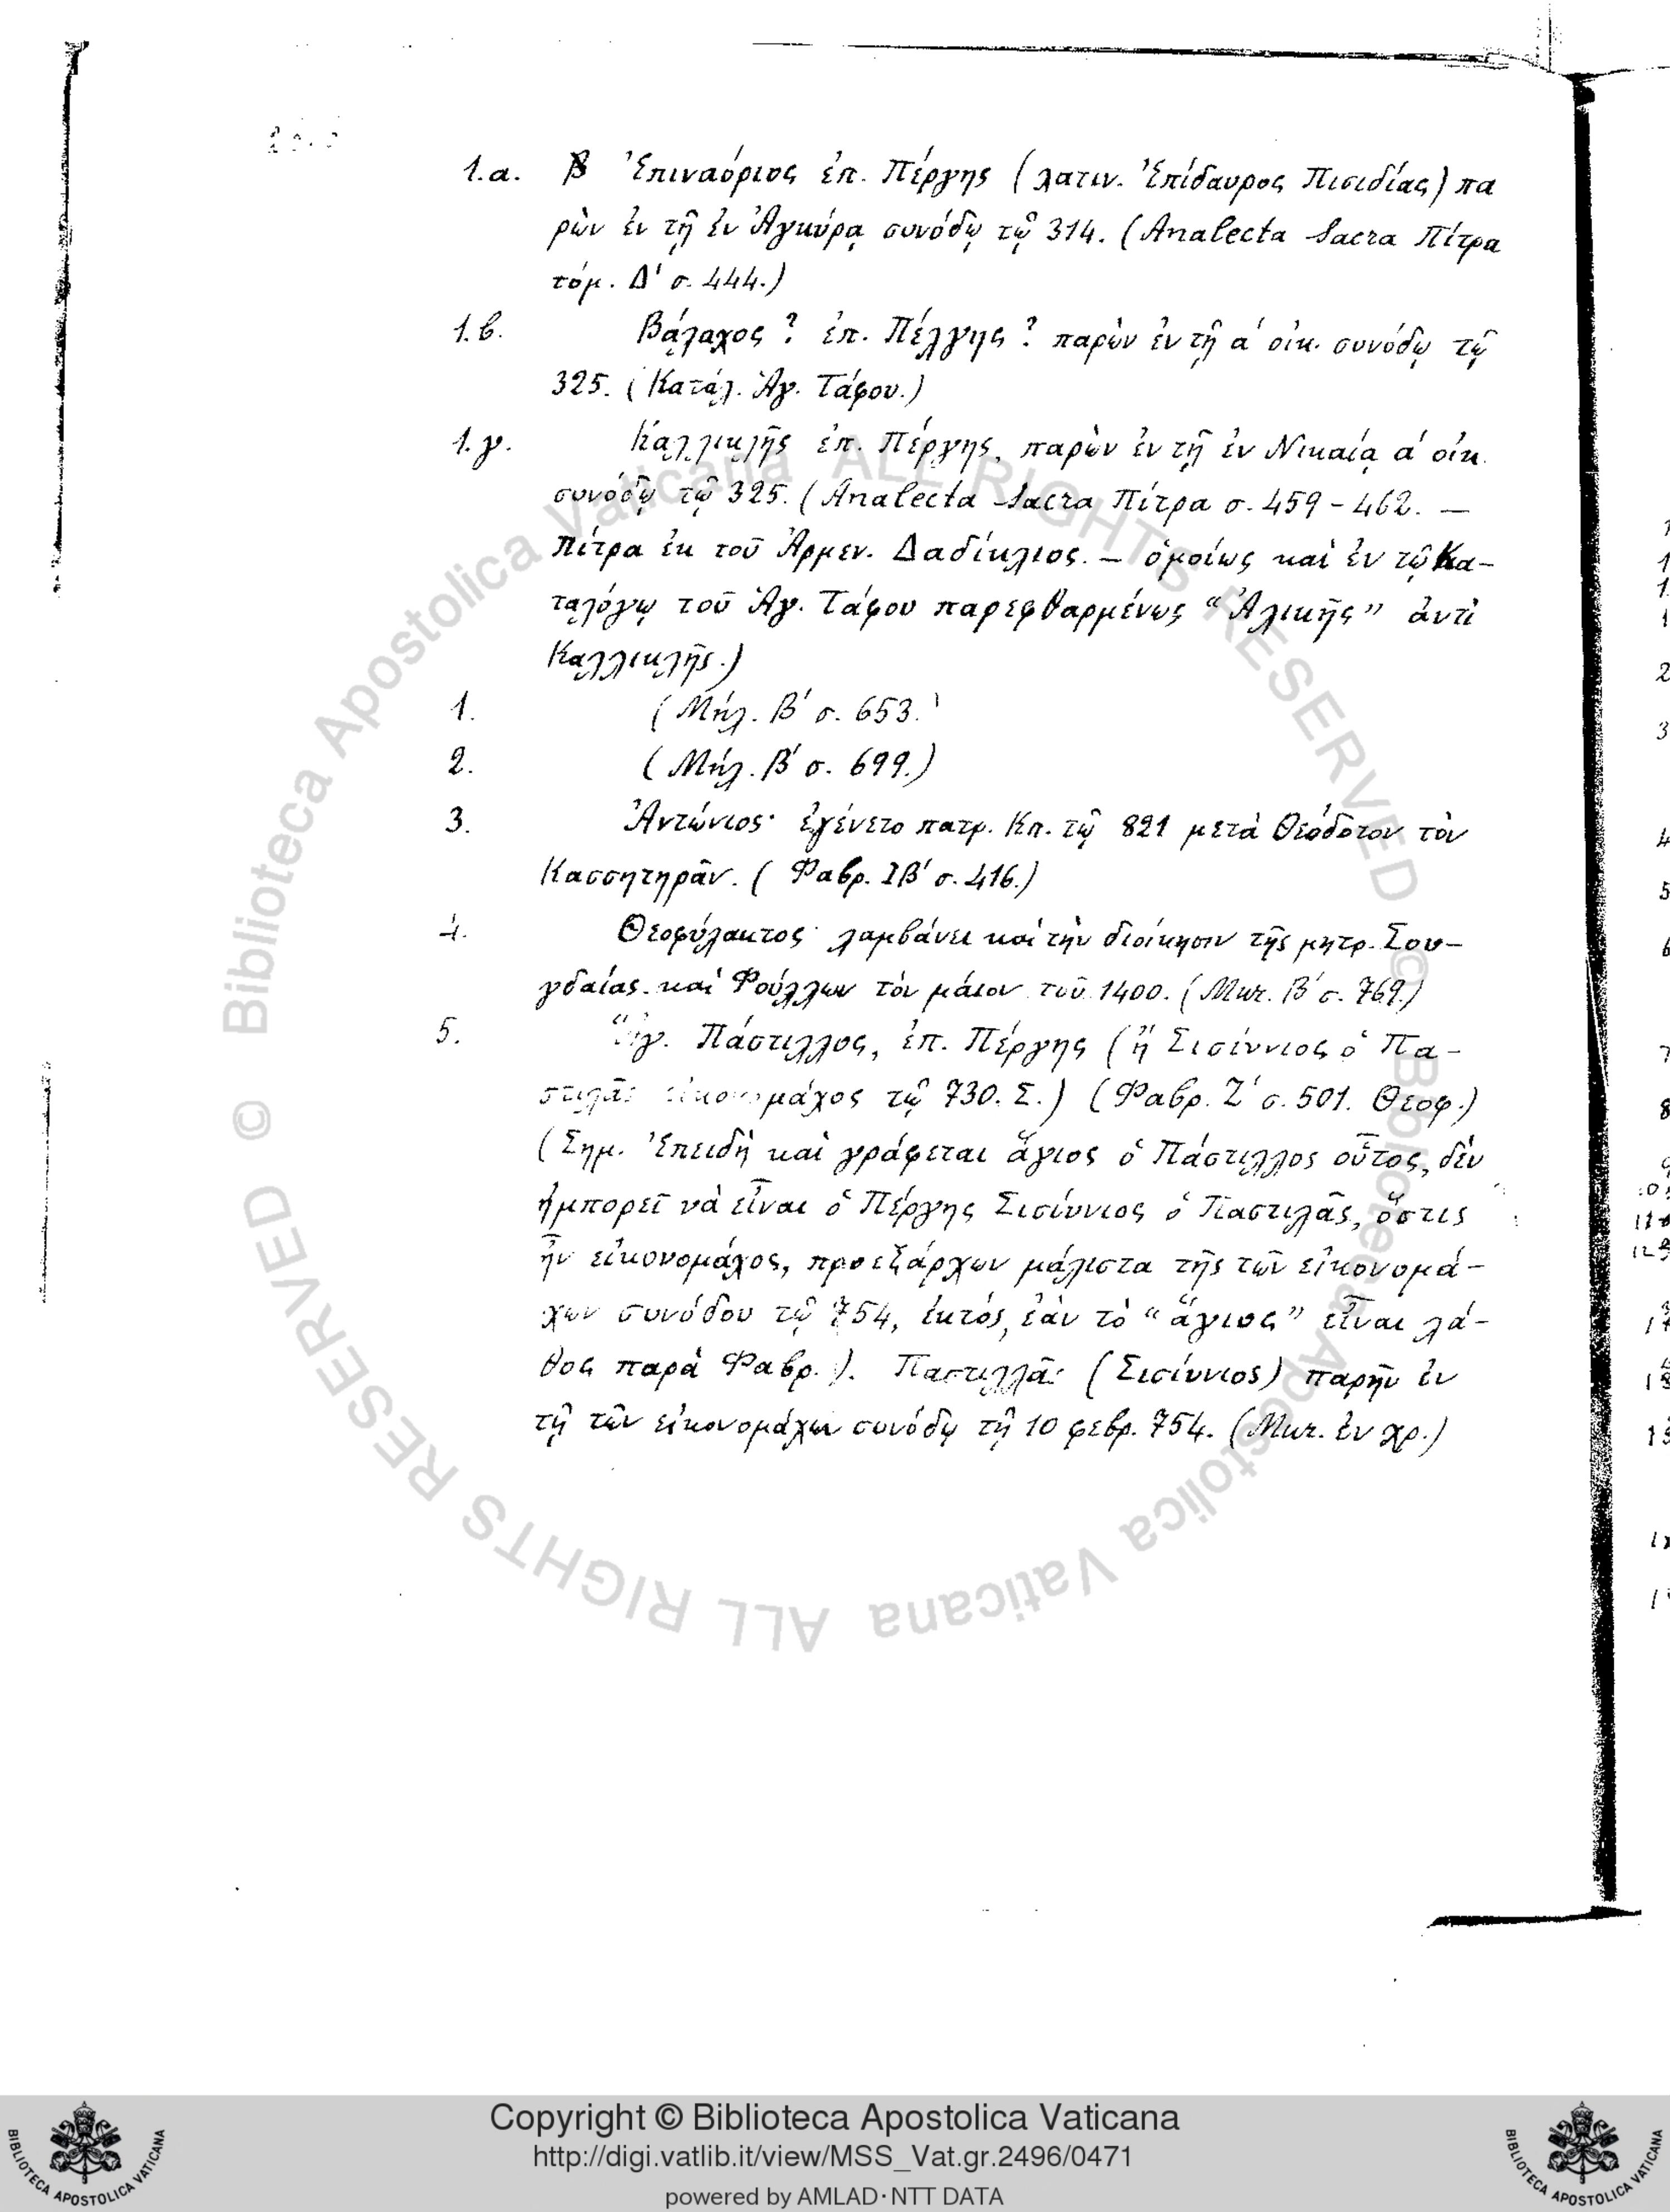 1.α. Ἐπιναόριος ἐπ. Πέργης (λατιν. Ἐπίδαυρος Πισιδίας) πα
ρὼν ἐν τῇ ἐν Ἀγκύρᾳ συνόδῳ τῷ 314. (Analecta Sacra Πίτρα
τόμ. Δ' σ. 444.)
1.β. Βάλαχος ? ἐπ. Πέλγης ? παρὼν ἐν τῇ α' οἰκ. συνόδῳ τῷ
325. (Κατάλ. Ἁγ. Τάφου.)
1.γ. Καλλικλῆς ἐπ. Πέργης, παρὼν ἐν τῇ ἐν Νικαίᾳ α' οἰκ.
συνόδῳ τῷ 325. (Analecta Sacra Πίτρα σ. 459 - 462. —
Πίτρα ἐκ τοῦ Ἀρμεν. Δαδίκλιος. — ὁμοίως καὶ ἐν τῷ Κα-
ταλόγῳ τοῦ Ἁγ. Τάφου παρεφθαρμένως “Ἀλικῆς” ἀντὶ
Καλλικλῆς.)
1. (Μήλ. Β' σ. 653.)
2. (Μήλ. Β' σ. 699.)
3. Ἀντώνιος· ἐγένετο πατρ. Κπ. τῷ 821 μετὰ Θεόδοτον τὸν
Κασσητηρᾶν. (Φαβρ. ΙΒ' σ. 416.)
4. Θεοφύλακτος· λαμβάνει καὶ τὴν διοίκησιν τῆς μητρ. Σου-
γδαίας καὶ Φούλλων τὸν μάιον τοῦ 1400. (Μικ. Β' σ. 769.)
5. Ἅγ. Πάστιλλος, ἐπ. Πέργης (ἢ Σισίννιος ὁ Πα-
στιλᾶς εἰκονομάχος τῷ 730. Σ.) (Φαβρ. Ζ' σ. 501. Θεοφ.)
(Σημ. Ἐπειδὴ καὶ γράφεται ἅγιος ὁ Πάστιλλος οὗτος, δὲν
ἠμπορεῖ νὰ εἶναι ὁ Πέργης Σισίννιος ὁ Παστιλᾶς, ὅστις
ἦν εἰκονομάχος, προεξάρχων μάλιστα τῆς τῶν εἰκονομά-
χων συνόδου τῷ 754, ἐκτός, ἐὰν τὸ “ἅγιος” εἶναι λά-
θος παρὰ Φαβρ.). Παστιλλᾶς (Σισίννιος) παρῆν ἐν
τῇ τῶν εἰκονομάχων συνόδῳ τῇ 10 φεβρ. 754. (Μικ. ἐν χρ.)
© Biblioteca Apostolica Vaticana ALL RIGHTS RESERVED
© Biblioteca Apostolica Vaticana ALL RIGHTS RESERVED
Copyright © Biblioteca Apostolica Vaticana
http://digi.vatlib.it/view/MSS_Vat.gr.2496/0471
powered by AMLAD·NTT DATA
BIBLIOTECA APOSTOLICA VATICANA
BIBLIOTECA APOSTOLICA VATICANA